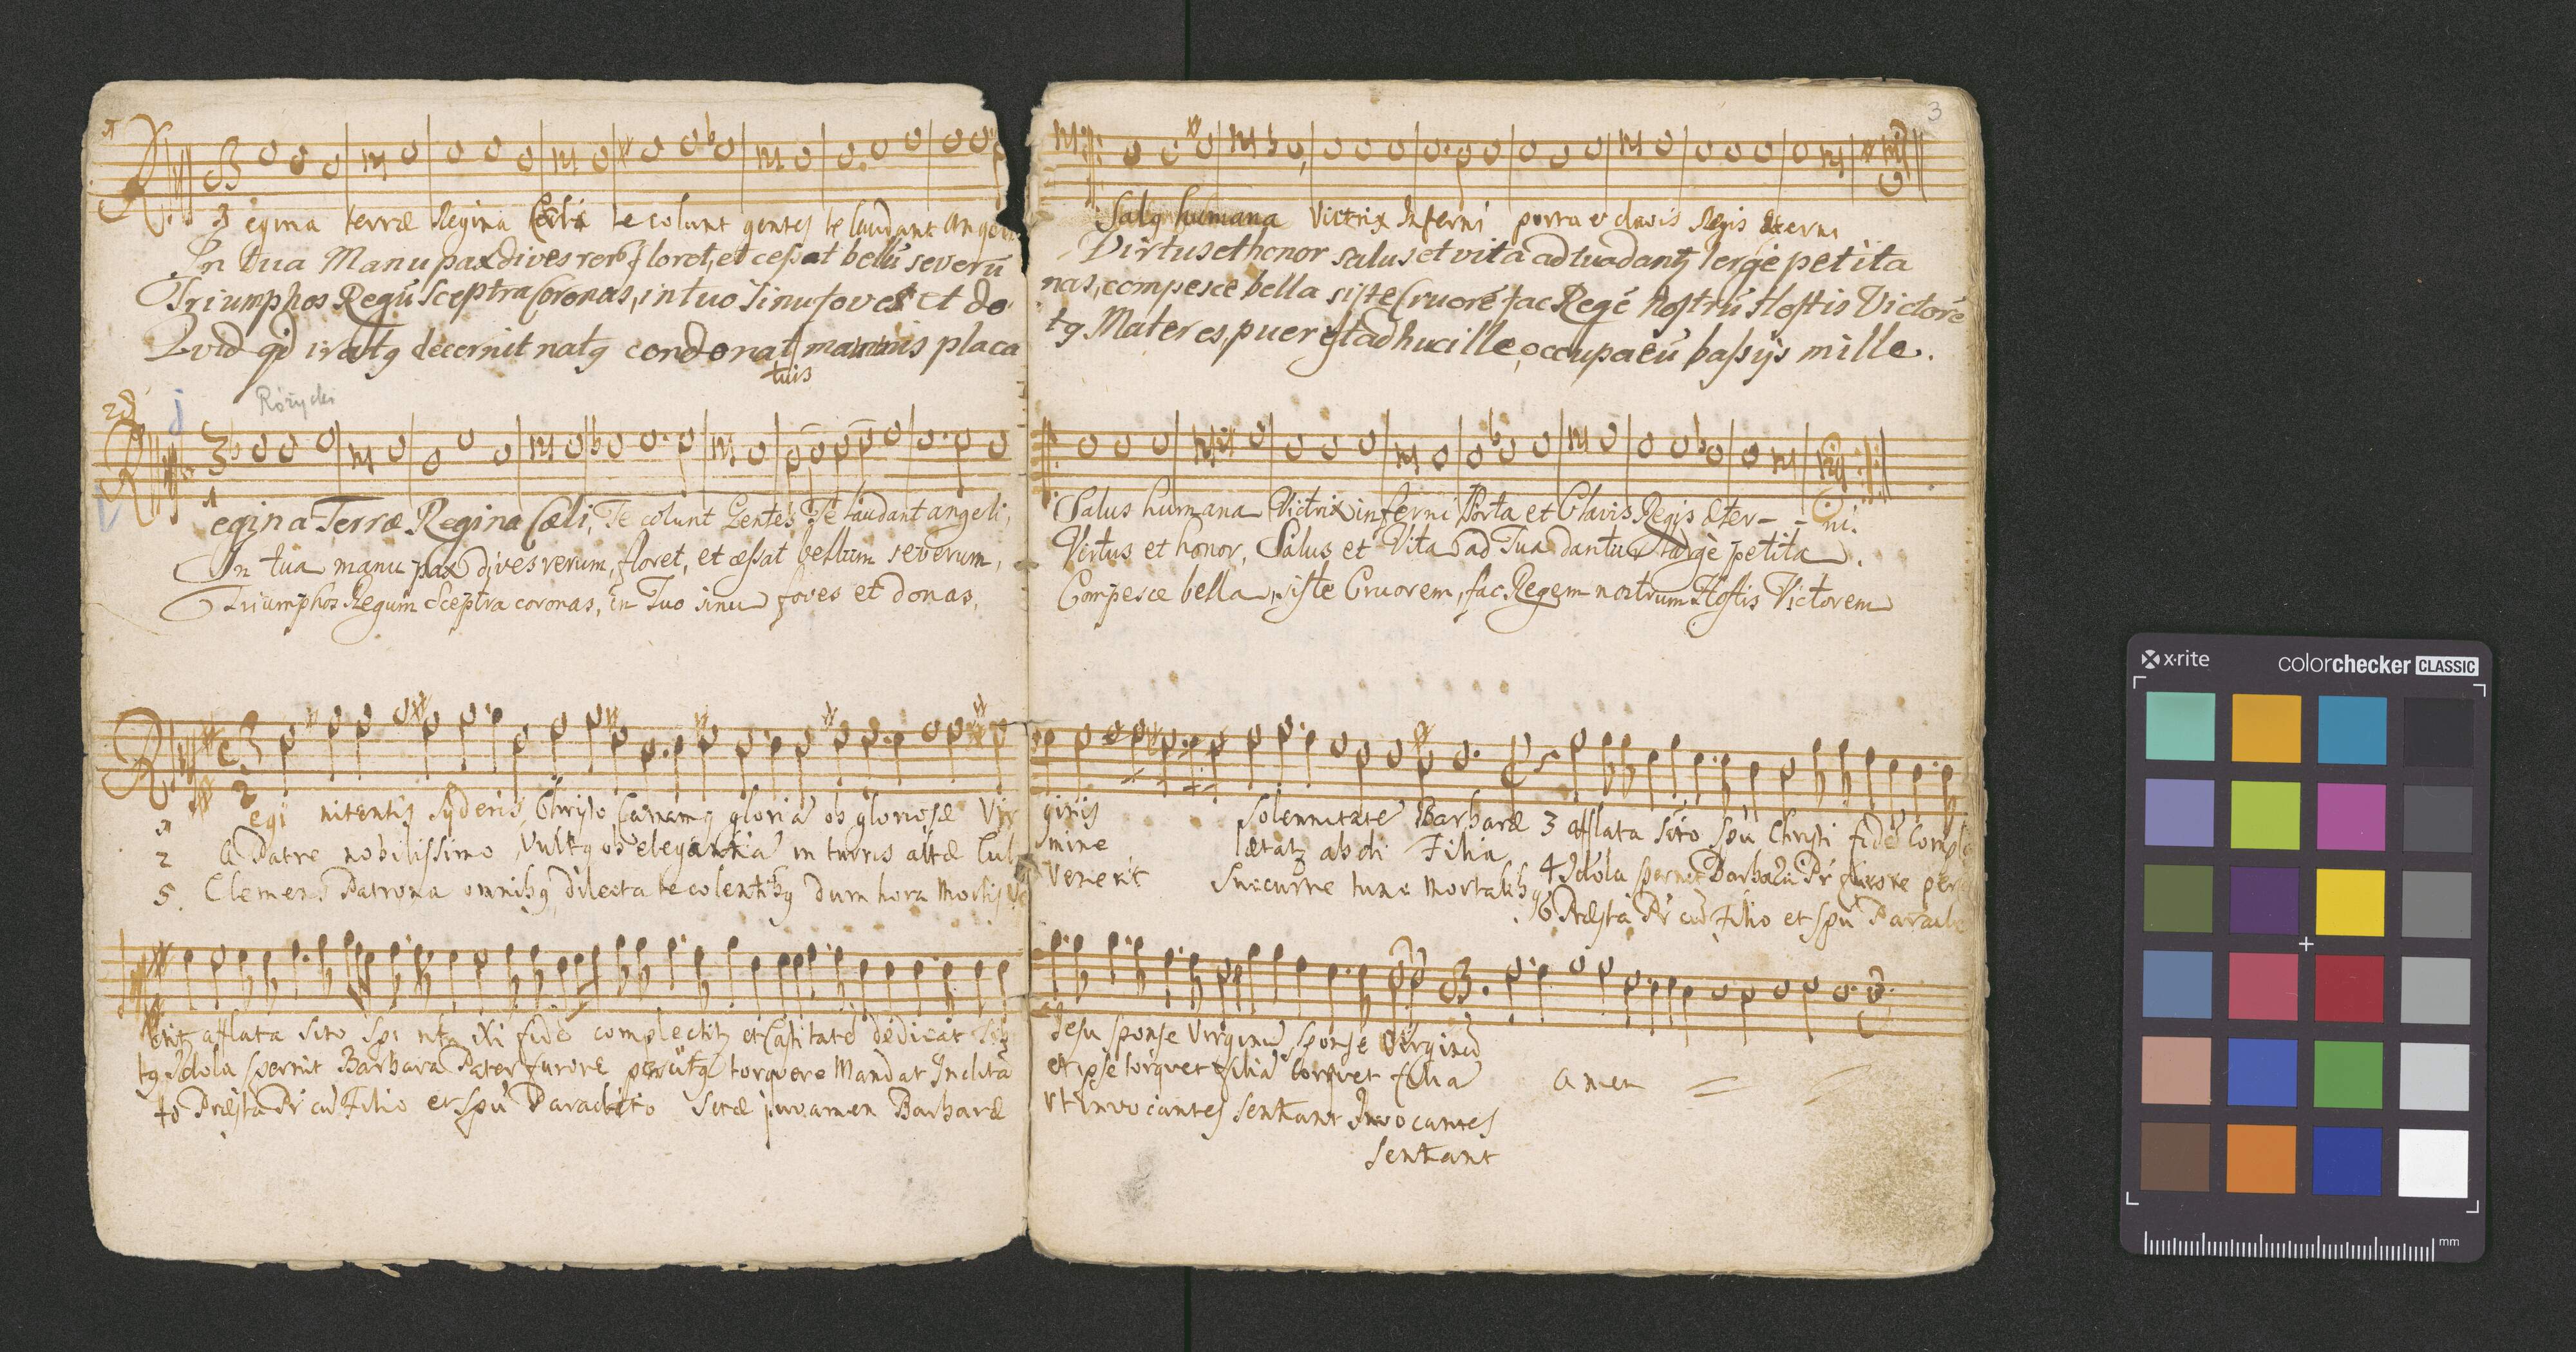 3
1
R
3 egina terræ Regina Cœli te colunt gentes te laudant Angeli
In tua Manu pax dives rerū floret, et ceßat bellū severū
Triumphos Regū Sceptra Coronas, in tuo Sinu foves et do
Quid qd iratq decernit natq condonat manuis placa
tuis
Salq humana Victrix Inferni porta et clavis Regis Æterni
Virtus et honor salus et vita ad tua dantꝫ lergè petita
nas, compesce bella siste Cruorē fac Regē Nostrū Hostis Victorē
tq Mater es, puer est adhuc ille, occupa eū baßijs mille.
Różycki
2
R
3
1
egina Terræ Regina Cæli, Te colunt Gentes Te laudant angeli,
In tua manu pax dives rerum, floret, et ceßat bellum severum,
Triumphos Regum Sceptra coronas, in Tuo sinu foves et donas,
Salus humana Victrix inferni Porta et Clavis Regis Æter - - ni.
Virtus et honor, Salus et Vita ad Tua dantur largè petita.
Compesce bella, siste Cruorem, fac Regem nostrum Hostis Victorem
R
C 3
2
1 egi nitentis Syderis, Christo Canamq gloriā ob gloriosæ Vir
2 A Patre nobilissimo Vultq ob elegantiā in turris altæ Cul
5. Clemens Patrona omnibq, dilecta te colentibq dum hora Mortis
ginis Solemnitate Barbaræ 3 afflata sito Spū Christi fidē Comple
mine lætatꝫ abdi Filia 4 Idola spernit Barbara Pr furore per
Venerit Succurre tunc Mortalibq 6 Præsta Pr cū Filio et spū Paracle
titꝫ afflata sito Spi Xi fidē complectitꝫ et Castitatē dedicat
tq Idola spernit Barbara Pater furore percitq torquere Mandat Inclitā
to Præsta Pr cū Filio et spū Paracleto Sctæ juvamen Barbaræ
Jesu sponse Virginū, sponse Virginū
et ipse torquet filiā torquet filiā
Ut invocantes sentiant Invocantes
sentiant
Amen
x·rite colorchecker CLASSIC
mm